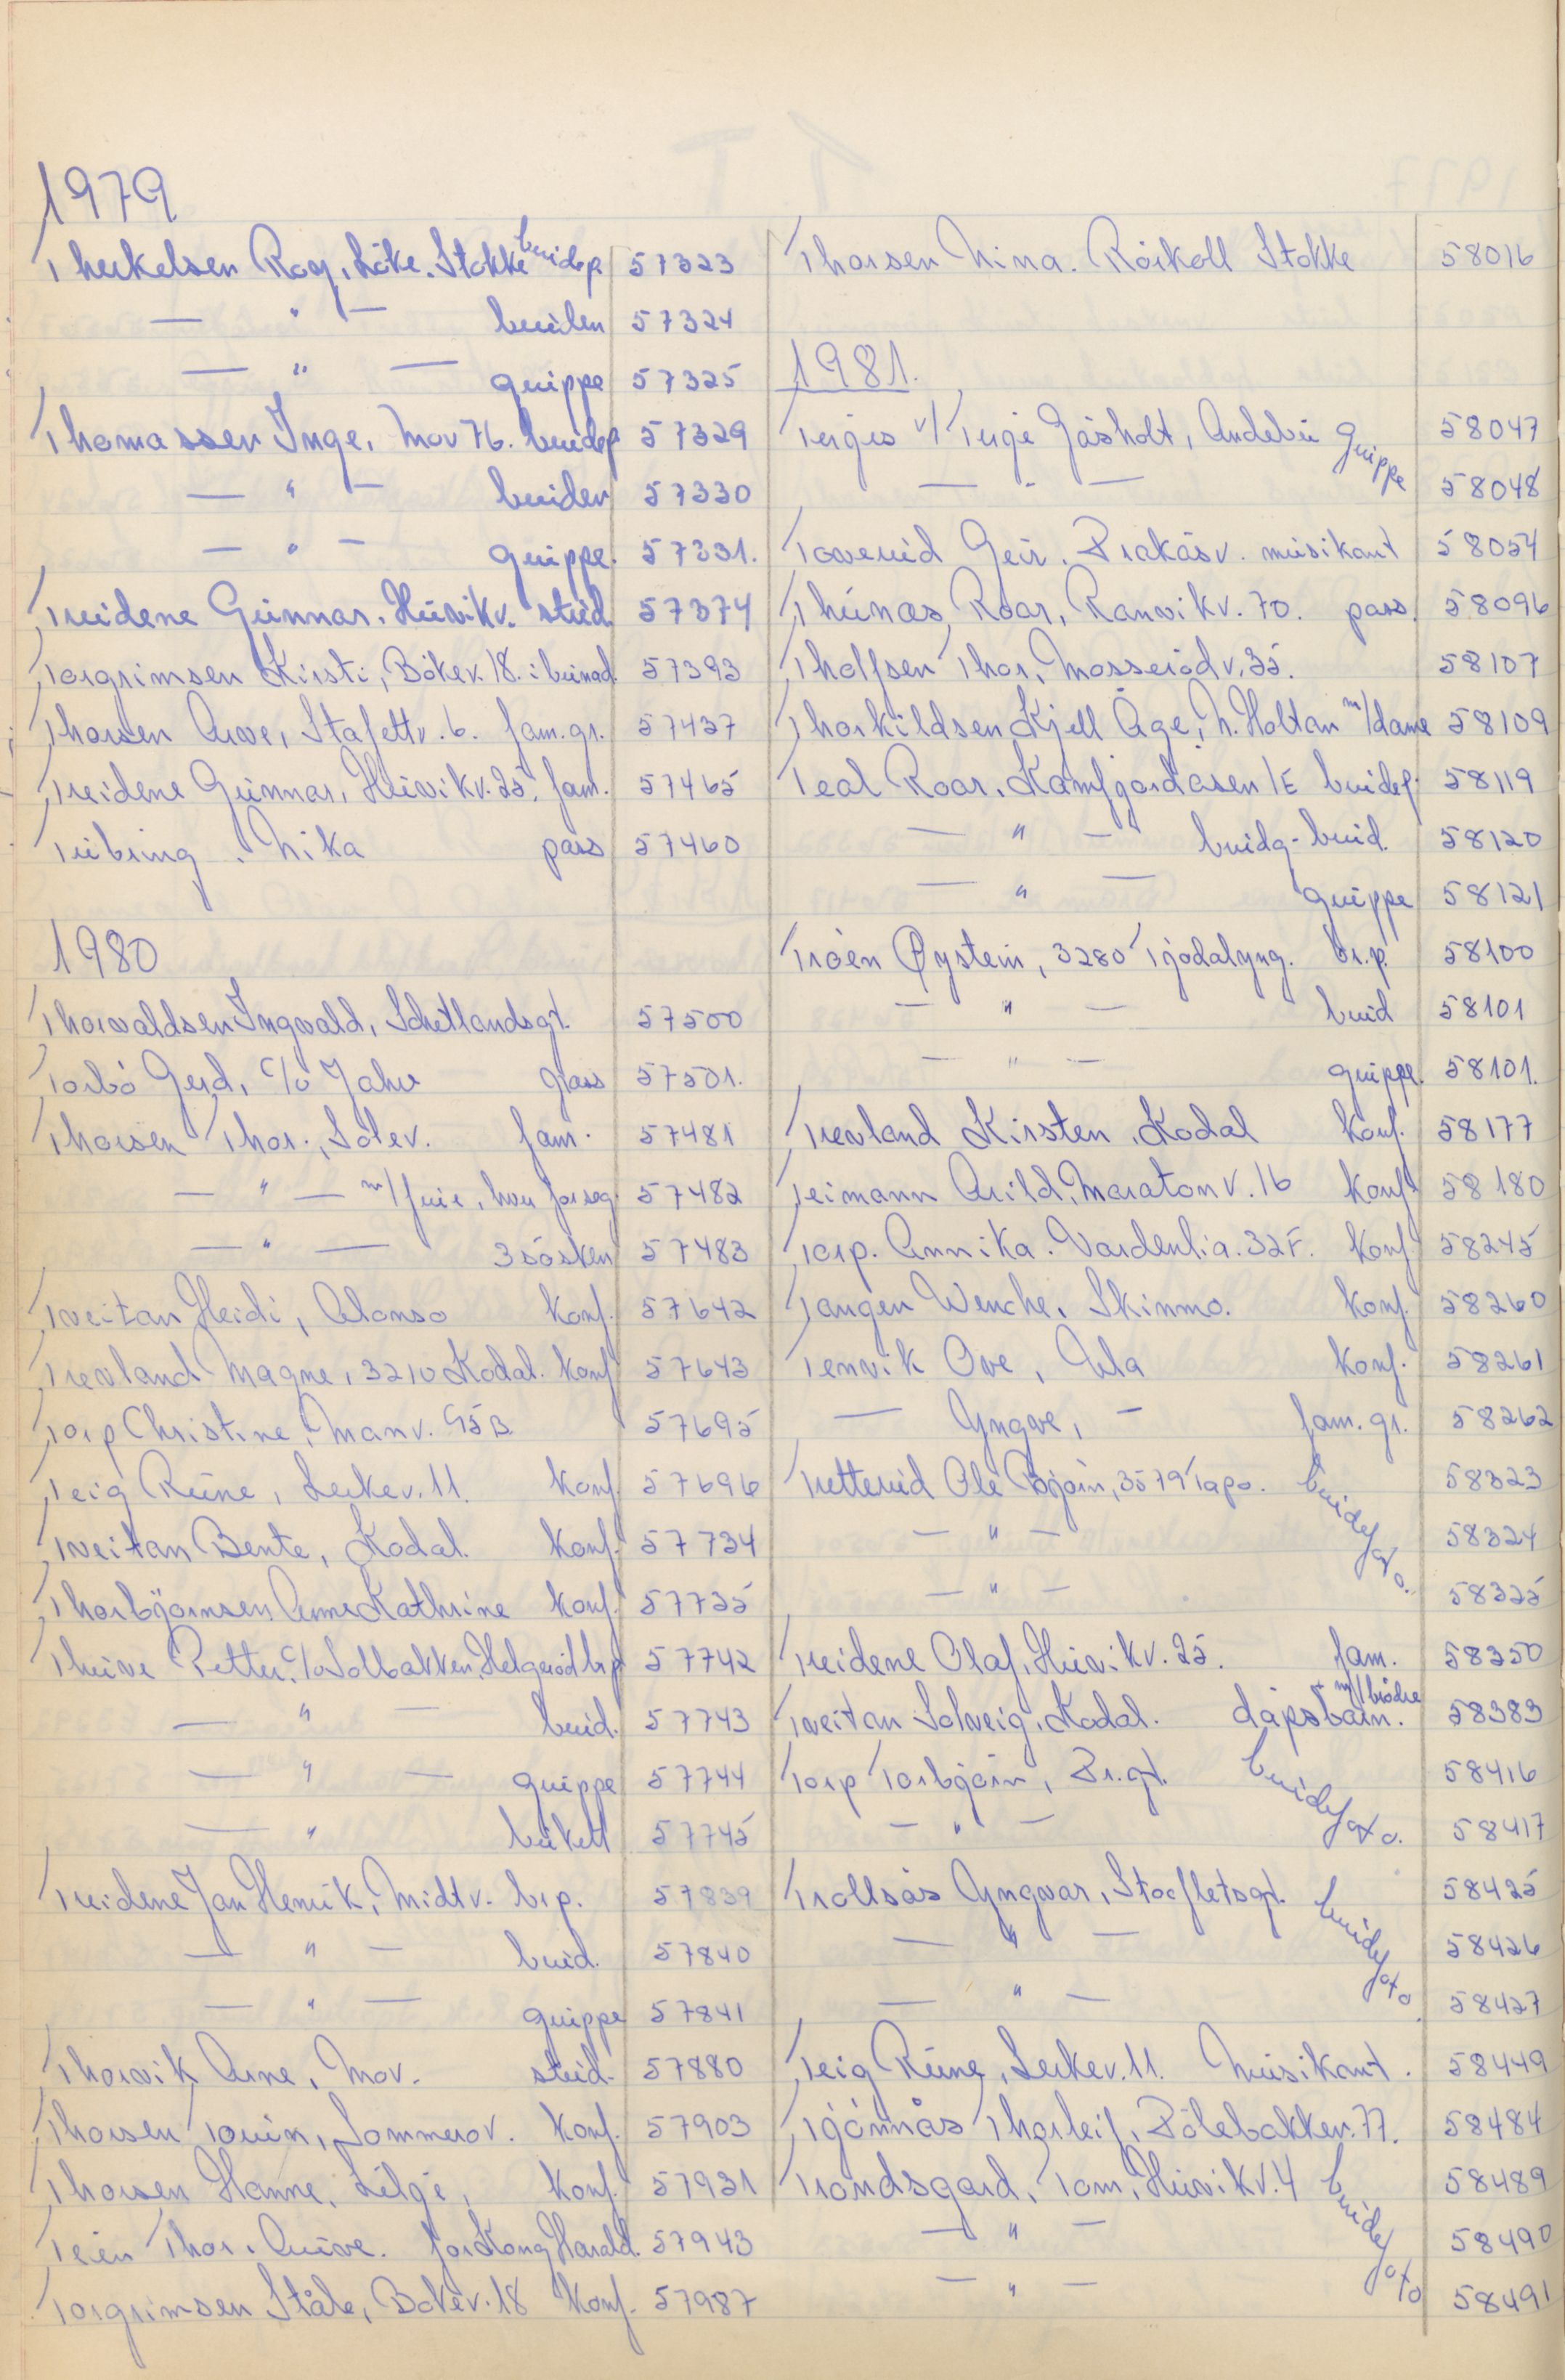 1979
Therkelsen Rog, Löke, Stokke brudep. 57323
— " — bruden 57324
— " — gruppe 57325
Thomassen Inge, Mov 76. brudep 57329
— " — bruden 57330
— " — gruppe. 57331.
Treidene Gunnar, Huvikv. stud. 57374
Torgrimsen Kirsti, Bökev. 18. i bunad. 57393
Thorsen Arve, Stafettv. 6. fam. gr. 57437
Treidene Gunnar, Huvikv. 25, fam. 57465
Nika pass 57460
1980
Thorvaldsen Ingvald, Schetlandsgt. 57500
Torbö Gerd, c/o Jahre pass 57501.
Thorsen Thor, Solev. fam. 57481
— " — m/frue, hver for seg. 57482
— " — 3 sösken 57483
Tveitan Heidi, Alonso konf. 57642
Trevland Magne, 3210 Kodal. konf 57643
Torp Christine, Manv. 95B 57695
Teig Rune, Lerkev. 11. konf. 57696
Tveitan Bente, Kodal. konf. 57734
Thorbjørnsen Anne Kathrine konf. 57735
Petter, c/o Solbakken, Helgeröd br.p 57742
— " — brud. 57743
— " — gruppe 57744
— " — bukett 57745
Treidene Jan Henrik, Midtv. br.p. 57839
— " — brud. 57840
— " — gruppe 57841
Thorvik Arne, Mov. stud. 57880
Thorsen Torunn, Sommerov. konf. 57903
Thorsen Hanne, Lilge, konf. 57931
Teien Thor, for Kong Harald. 57943
Torgrimsen Ståle, Bökev. 18 konf. 57987
Thorsen Nina. Röikoll Stokke 58016
1981.
Terjes v/ Terje Gåsholt, Andebu gruppe 58047
— " — 58048
Geir, Brekåsv. musikant 58054
Thunæs, Roar, Ranvikv. 70. pass. 58096
Tholfsen Thor, Mosserödv. 35. 58107
Thorkildsen Kjell Åge, N. Holtan m/dame 58109
Teal Roar, Kamfjordåsen 1E brudep. 58119
— " — brudg-brud. 58120
— " — gruppe 58121
Tröen Øystein, 3280 Tjodalyng. br.p. 58100
— " — brud 58101
— " — gruppe. 58101.
Trevland Kirsten, Kodal konf. 58177
Teimann Arild, Maratonv. 16 konf. 58180
Torp. Annika. Vardenlia. 32F. konf. 58245
Tangen Wenche, Skinmo. konf. 58260
Tenvik Ove, Ula konf. 58261
— Yngve, - fam. gr. 58262
Tretterud Ole Bjørn, 3579 Torpo. brudefoto. 58323
— " — 58324
— " — 58325
Treidene Olaf, Huvikv. 25. fam. 58350
Tveitan Solveig, Kodal. dåpsbarn. m/brödre 58383
Torp Torbjørn, Br.gt. brudefoto. 58416
— " — 58417
Trollsås Yngvar, Stoefletsgt. brudefoto. 58425
— " — 58426
— " — 58427
Teig Rune, Lerkev. 11. Musikant. 58449
Tjönnås Thorleif, Bölebakken. 77. 58484
Trondsgard, Tom, Huvikv. 4 brudefoto 58489
— " — 58490
— " — 58491